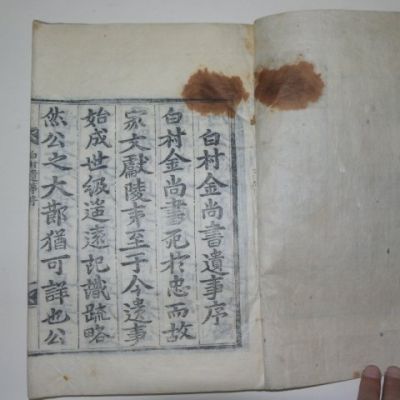 白村金尚書遺事序
白村金尚書死於忠而故
家文獻陵夷至于今遺事
始成世級遥遠記識疏略
然公之大節猶可詳也公